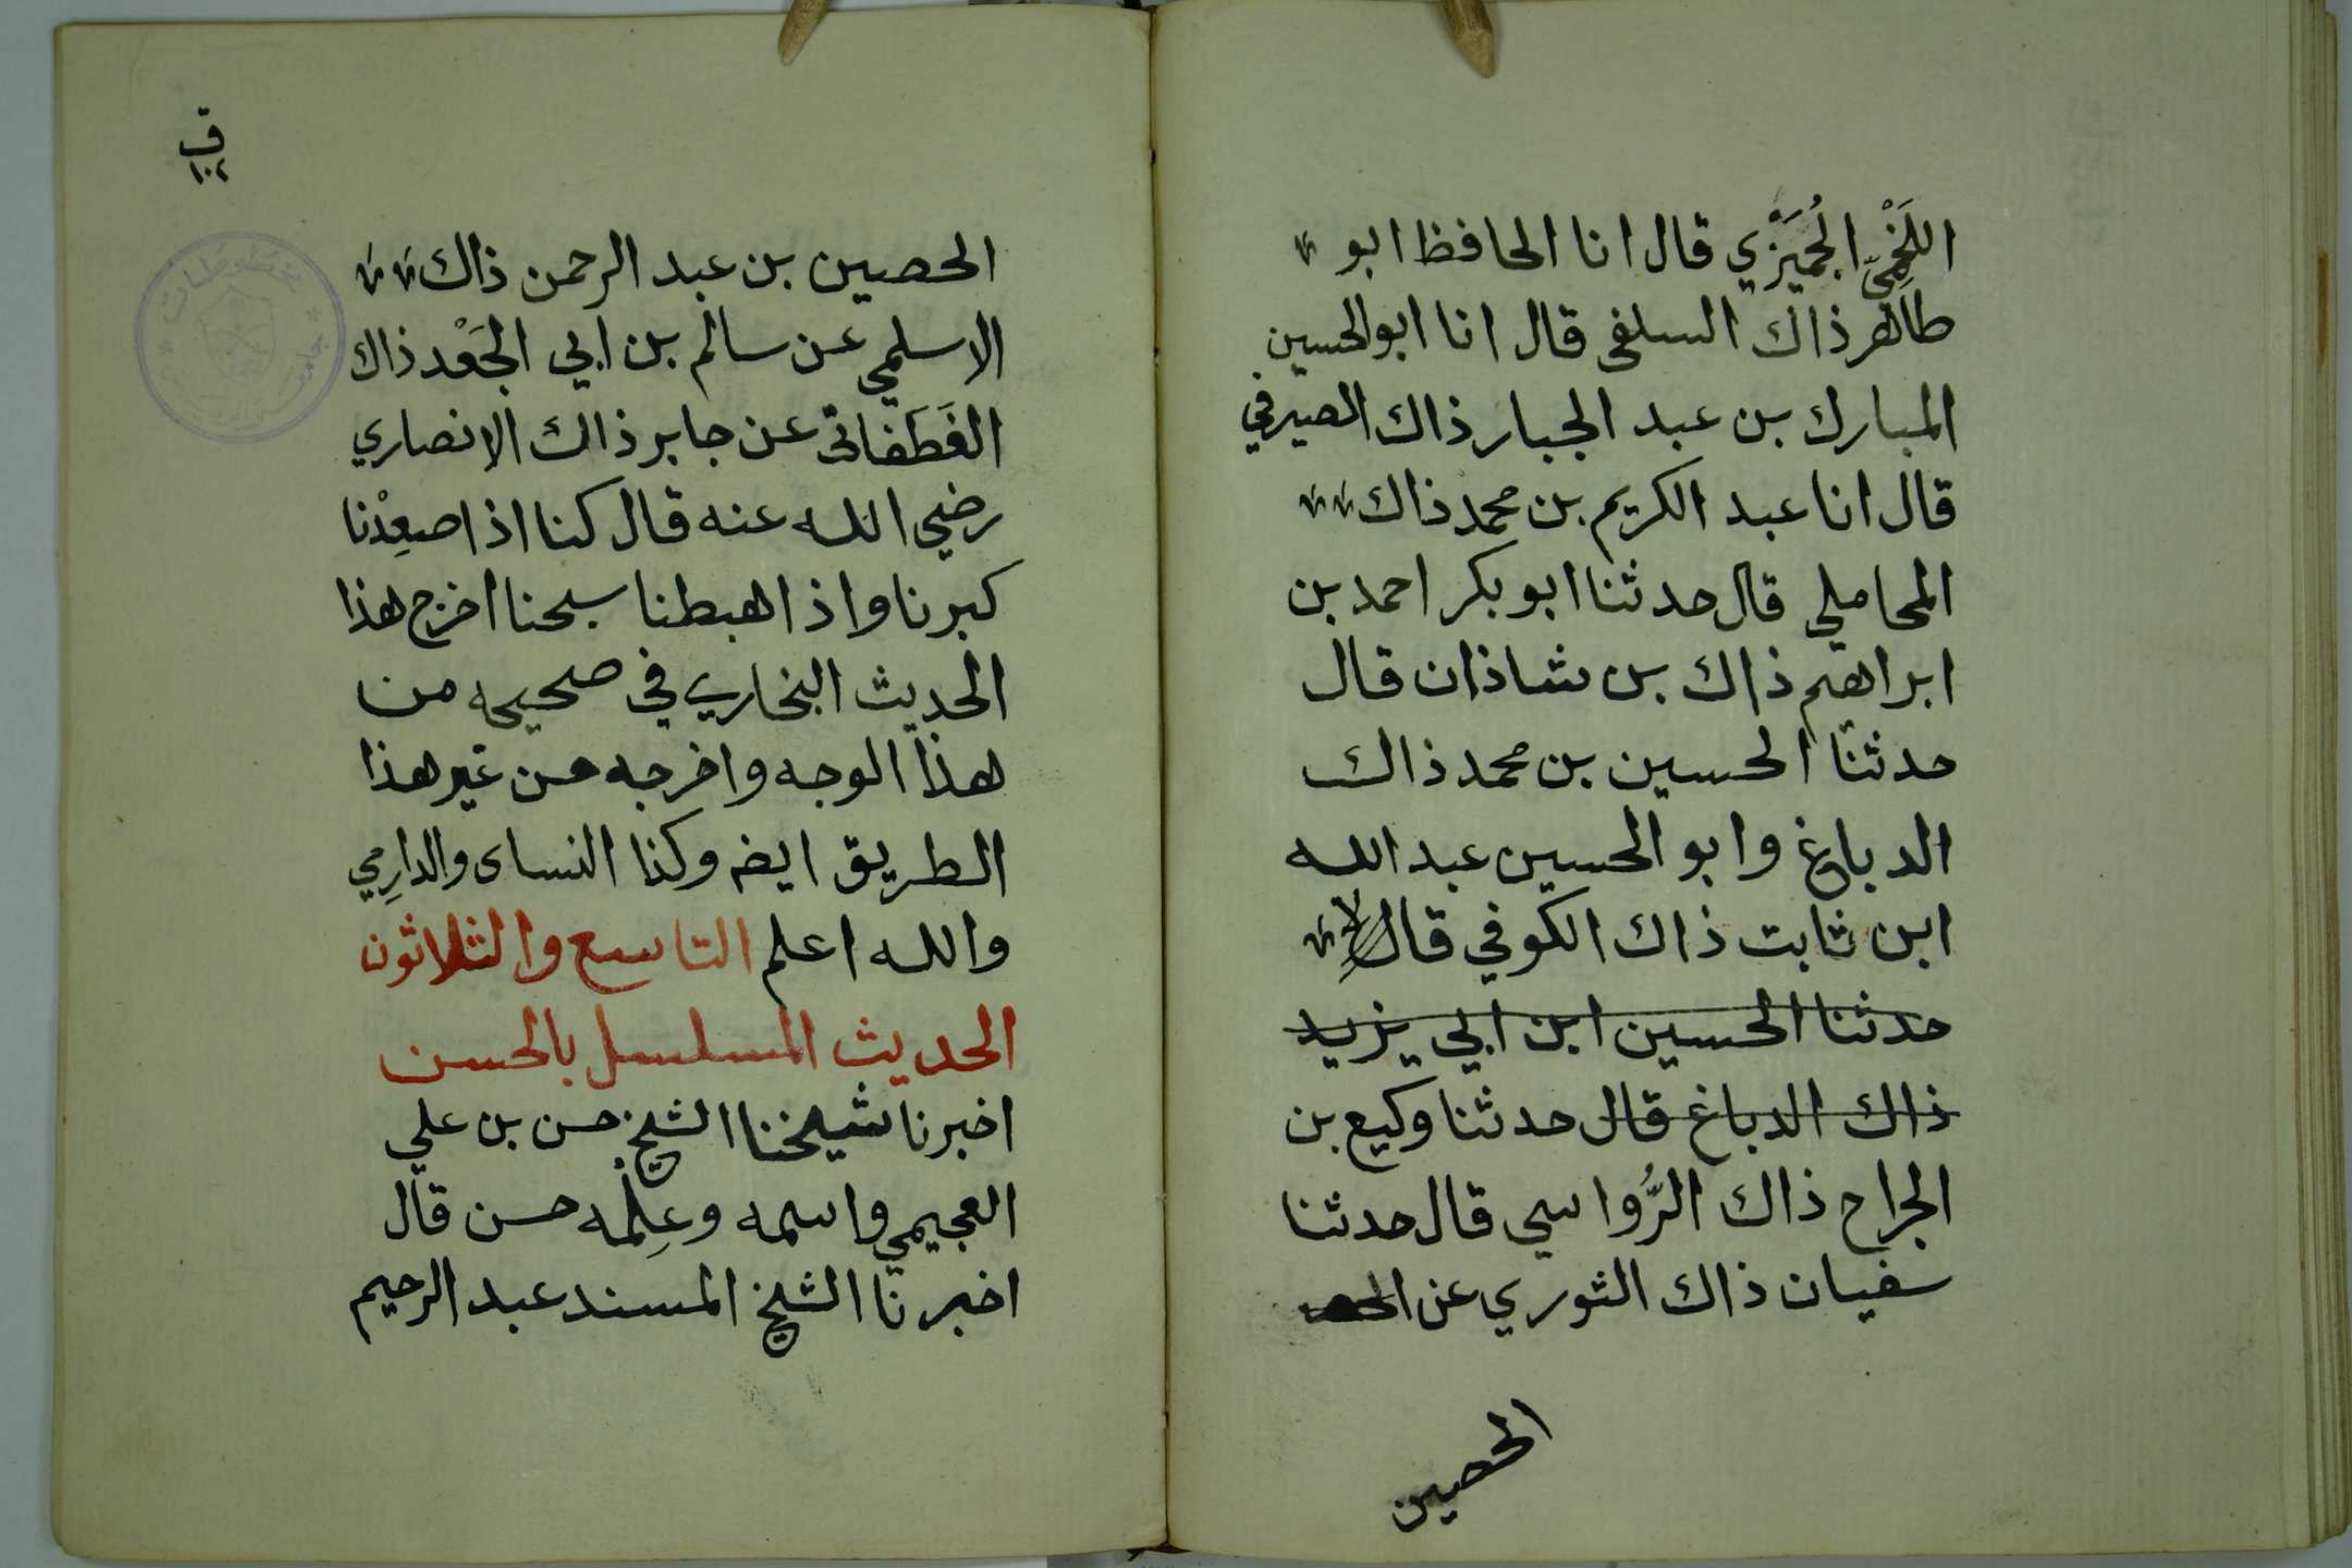 اللَخْمِيّ الجُمَيْزِي قال انا الحافظ ابو
طاهر ذاك السلفى قال انا ابو الحسين
المبارك بن عبد الجبار ذاك الصيرفي
قال انا عبد الكريم بن محمد ذاك
المحاملي قال حدثنا ابو بكر احمد بن
ابراهيم ذاك بن شاذان قال
حدثنا الحسين بن محمد ذاك
الدباغ وابو الحسين عبد الله
ابن ثابت ذاك الكوفي قال
حدثنا الحسين ابن ابي يزيد
ذاك الدباغ قال حدثنا وكيع بن
الجراح ذاك الرُّواسي قال حدثنا
سفيان ذاك الثوري عن
الحصين
ق
١٠٢
الحصين بن عبد الرحمن ذاك
الاسلمي عن سالم بن ابي الجَعْد ذاك
الغَطَفانى عن جابر ذاك الانصاري
رضي الله عنه قال كنا اذا صعِدْنا
كبرنا واذا هبطنا سبحنا اخرج هذا
الحديث البخاري في صحيحه من
هذا الوجه واخرجه من غير هذا
الطريق ايضه وكذا النساى والدارِمي
والله اعلم التاسع والثلاثون
الحديث المسلسل بالحسن
اخبرنا شيخنا الشيخ حسن بن علي
العجيمي واسمه وعِلمه حسن قال
اخبرنا الشيخ المسند عبد الرحيم
مخطوطات
جامعة